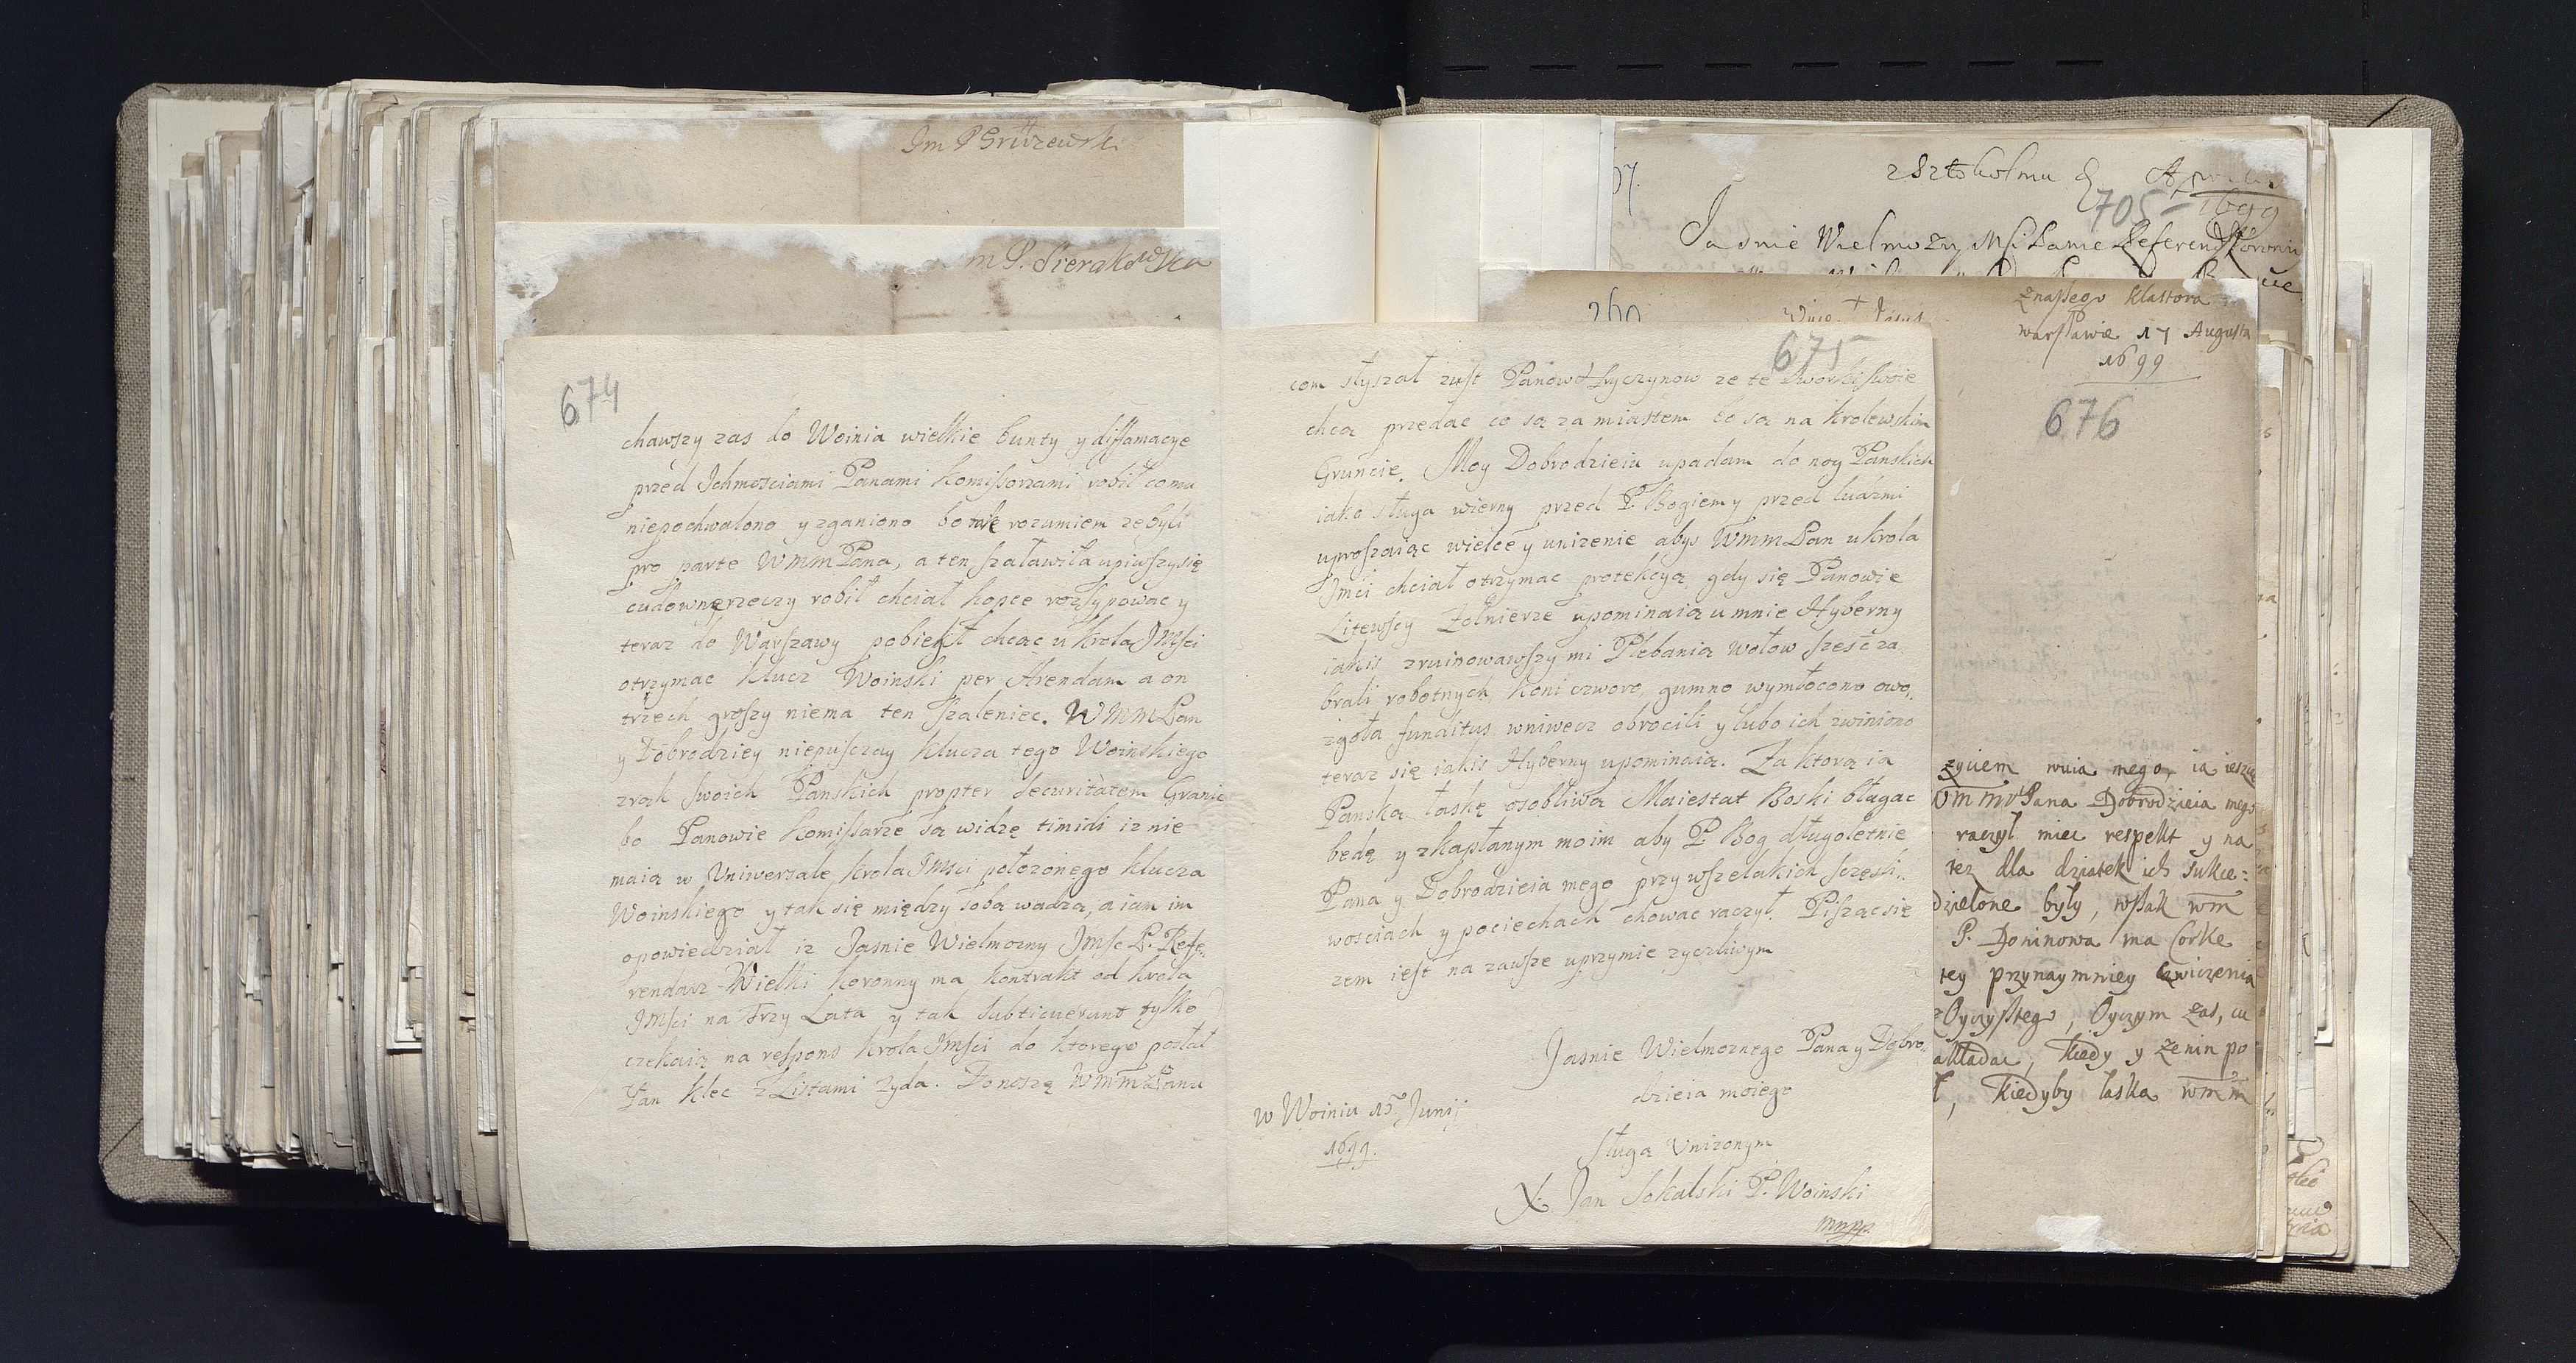 Im P Grudzewski
m P. Sierakowska
674
chawszy zas do Woinia wielkie bunty y diffamacye
przed Ichmosciami Panami Komissorzami robił co mu
niepochwalono y zganiono bo tak rozumiem ze byli
pro parte WmmPana, a ten szaławiła upiwszy się
cudowne rzeczy robił chciał kopce rozsypowac y
teraz do Warszawy pobiegł chcąc u Krola JMsci
otrzymac klucz Woinski per Arendam a on
trzech groszy niema ten szaleniec. WMMPan
y Dobrodziey niepuszczay klucza tego Woinskiego
z rąk swoich Panskich propter securitatem Granic
bo Panowie Komissarze są widzę timidi iz nie
maią w Uniwersale Krola JMsci położonego klucza
Woinskiego y tak się między sobą wadzą, a iam im
opowiedział iz Jasnie Wielmozny JMsc P. Refe-
rendarz Wielki Koronny ma kontrakt od Krola
JMsci na Trzy Lata y tak subticuerunt tylko
czekaią na respons Krola JMsci do ktorego posłał
Pan Klec z Listami Zyda. Donoszę WMMPanu
675
com słyszał z ust Panow Hryczynow ze te Dworki swoie
chcą przedac co są za miastem co są na Krolewskim
Gruncie. Moy Dobrodzieiu upadam do nog Panskich
iako sługa wierny przed P. Bogiem y przed ludzmi
upraszaiąc wielce y unizenie abys WmmPan u Krola
Jmci chciał otrzymac protekcyą gdy się Panowie
Litewscy Zołnierze upominaią u mnie Hyberny
iakis zruinowawszy mi Plebanią wołow szesc za
brali robotnych, koni czworo, gumno wymłocono owo
zgoła funditus wniwecz obrocili y lubo ich zwiniono
teraz się iakis Hyberny upominaią. Za ktorą ia
Panską łaskę osobliwą Maiestat Boski błagac
będę y z kapłanym moim aby P. Bog długoletnie
Pana y Dobrodzieia mego przy wszelakich szczesli-
wosciach y pociechach chowac raczył. Pisząc się
zem iest na zawsze uprzymie zyczliwym
Jasnie Wielmoznego Pana y Dobro-
dzieia moiego
w Woiniu 15 Junij
1699.
Sługa Unizonym
X. Jan Sokalski P. Woinski
mnpp
z Sztokolmu d Aprilis
705
1699
Jasnie Wielmozny Msci Panie Referend Koronny
260
z naszego Klasztora
warszawie 17 Augusta
1699
676
zyciem wuia mego, ia ieszcze
WmmPana Dobrodzieia mego
raczył miec respekt y na
tez dla dziatek ich sukce:
dzielone były, wszak wm
P. Doninowa ma Corke
tey przynaymniey cwiczenia
Oyczystego, Oyczym zas, cu
akładac, kiedy y Zenin po
ł, kiedyby łaska wmm